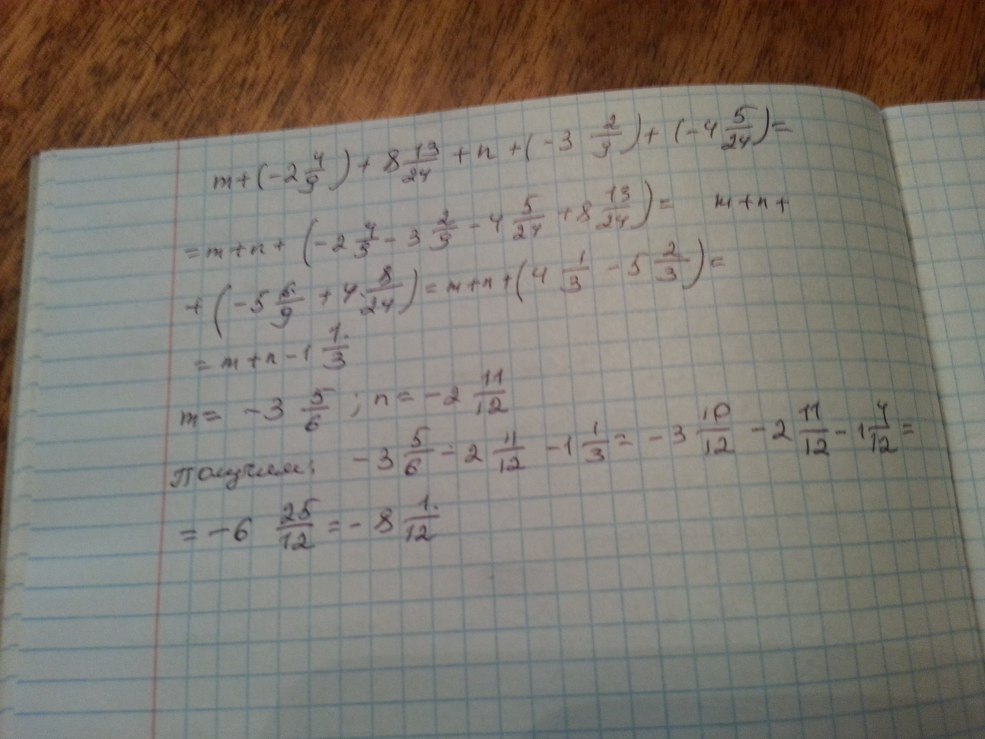 m+(-2 4/9)+8 13/24+n+(-3 2/9)+(-4 5/24)=
=m+n+(-2 4/9-3 2/9-4 5/24+8 13/24)= m+n+
+(-5 6/9+4 8/24)=m+n+(4 1/3-5 2/3)=
=m+n-1 1/3
m= -3 5/6; n=-2 11/12
Получим: -3 5/6-2 11/12-1 1/3=-3 10/12-2 11/12-1 4/12=
=-6 25/12=-8 1/12